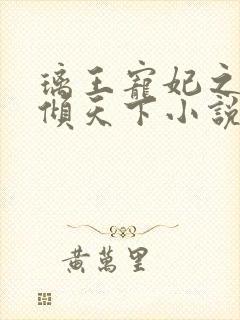 璃王寵妃之
傾天下小說
黃萬里